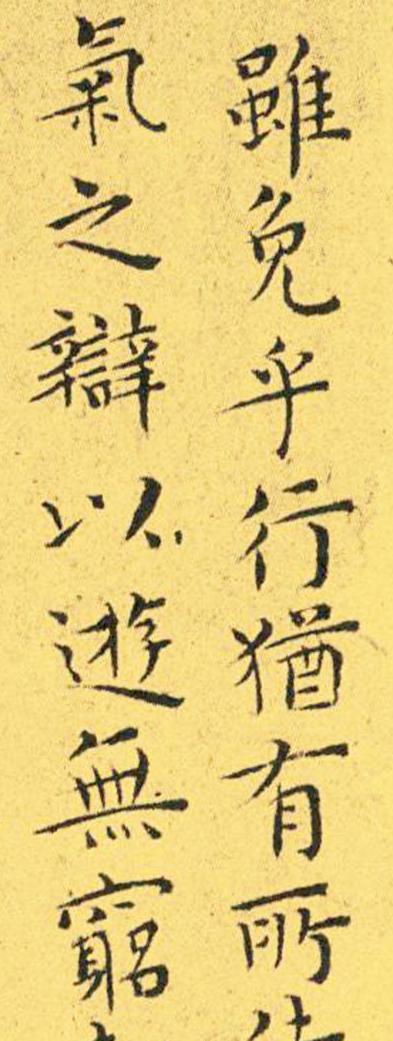 雖免乎行猶有所
氣之辯以遊無窮